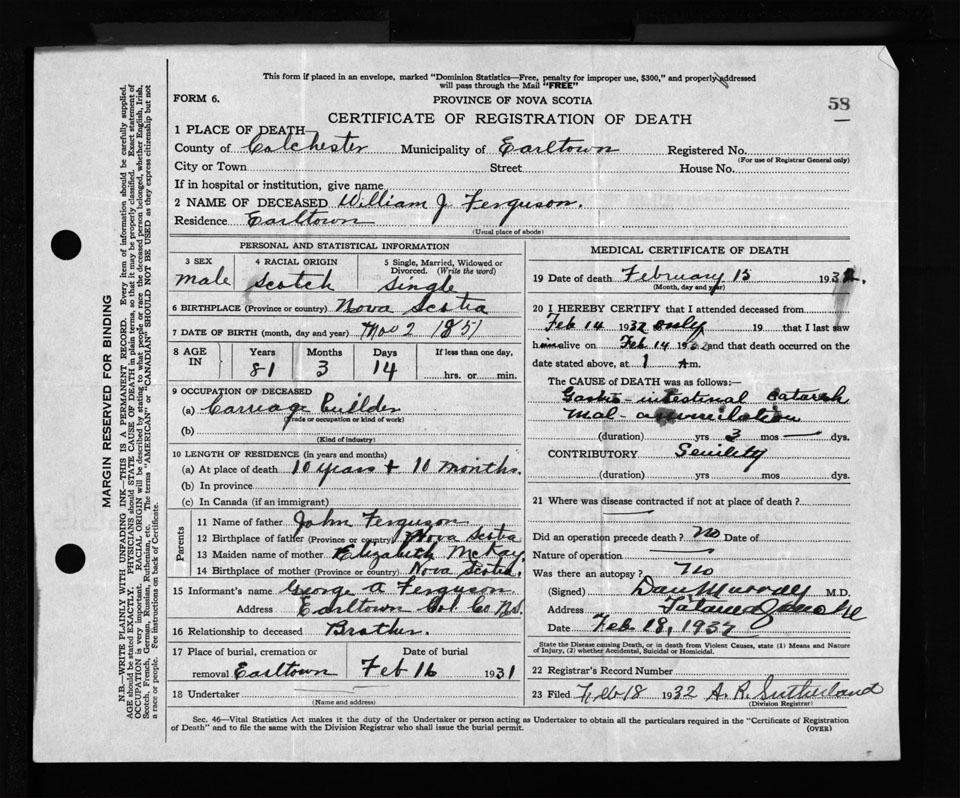 This form if placed in an envelope, marked "Dominion Statistics—Free, penalty for improper use, $300," and properly addressed
will pass through the Mail "FREE"
FORM 6.
PROVINCE OF NOVA SCOTIA
58
CERTIFICATE OF REGISTRATION OF DEATH
1 PLACE OF DEATH
County of Colchester Municipality of Earltown Registered No.
(For use of Registrar General only)
City or Town Street House No.
If in hospital or institution, give name
2 NAME OF DECEASED William J. Ferguson.
Residence Earltown
(Usual place of abode)
PERSONAL AND STATISTICAL INFORMATION
3 SEX 4 RACIAL ORIGIN 5 Single, Married, Widowed or
Divorced. (Write the word)
male Scotch Single
6 BIRTHPLACE (Province or country) Nova Scotia
7 DATE OF BIRTH (month, day and year) Nov 2 1851
8 AGE IN Years Months Days If less than one day,
81 3 14 hrs. or min.
9 OCCUPATION OF DECEASED
(a) Carriage Builder
(Trade or occupation or kind of work)
(b)
(Kind of industry)
10 LENGTH OF RESIDENCE (in years and months)
(a) At place of death 10 years + 10 months.
(b) In province
(c) In Canada (if an immigrant)
Parents
11 Name of father John Ferguson
12 Birthplace of father (Province or country) Nova Scotia
13 Maiden name of mother Elizabeth McKay
14 Birthplace of mother (Province or country) Nova Scotia.
15 Informant's name George A Ferguson
Address Earltown Col. Co N.S.
16 Relationship to deceased Brother.
17 Place of burial, cremation or Date of burial
removal Earltown Feb 16 1931
18 Undertaker
(Name and address)
MEDICAL CERTIFICATE OF DEATH
19 Date of death February 15 1932.
(Month, day and year)
20 I HEREBY CERTIFY that I attended deceased from
Feb 14 1932 only 19 that I last saw
him alive on Feb 14 1932 and that death occurred on the
date stated above, at 1 A m.
The CAUSE OF DEATH was as follows:
Gastro-intestinal Catarrh
Mal-assimilation
(duration) yrs 3 mos — dys.
CONTRIBUTORY Senility
(duration) yrs. mos. dys.
21 Where was disease contracted if not at place of death?
Did an operation precede death? No Date of
Nature of operation
Was there an autopsy? No
(Signed) Dan Murray M.D.
Address
Date Feb 18, 1932
State the Disease causing Death, or in death from Violent Causes, state (1) Means and Nature
of Injury, (2) whether Accidental, Suicidal or Homicidal.
22 Registrar's Record Number
23 Filed Feb 18 1932 A. R. Sutherland
(Division Registrar)
Sec. 46—Vital Statistics Act makes it the duty of the Undertaker or person acting as Undertaker to obtain all the particulars required in the "Certificate of Registration
of Death" and to file the same with the Division Registrar who shall issue the burial permit.
(OVER)
MARGIN RESERVED FOR BINDING
N.B.—WRITE PLAINLY WITH UNFADING INK—THIS IS A PERMANENT RECORD. Every item of information should be carefully supplied.
AGE should be stated EXACTLY. PHYSICIANS should STATE CAUSE OF DEATH in plain terms, so that it may be properly classified. Exact statement of
OCCUPATION is very important. RACIAL ORIGIN will be described by stating to what people or race the deceased person belonged, whether English, Irish,
Scotch, French, German, Russian, Ruthenian, etc. The terms "AMERICAN" or "CANADIAN" SHOULD NOT BE USED as they express citizenship but not
a race or people. See instructions on back of Certificate.